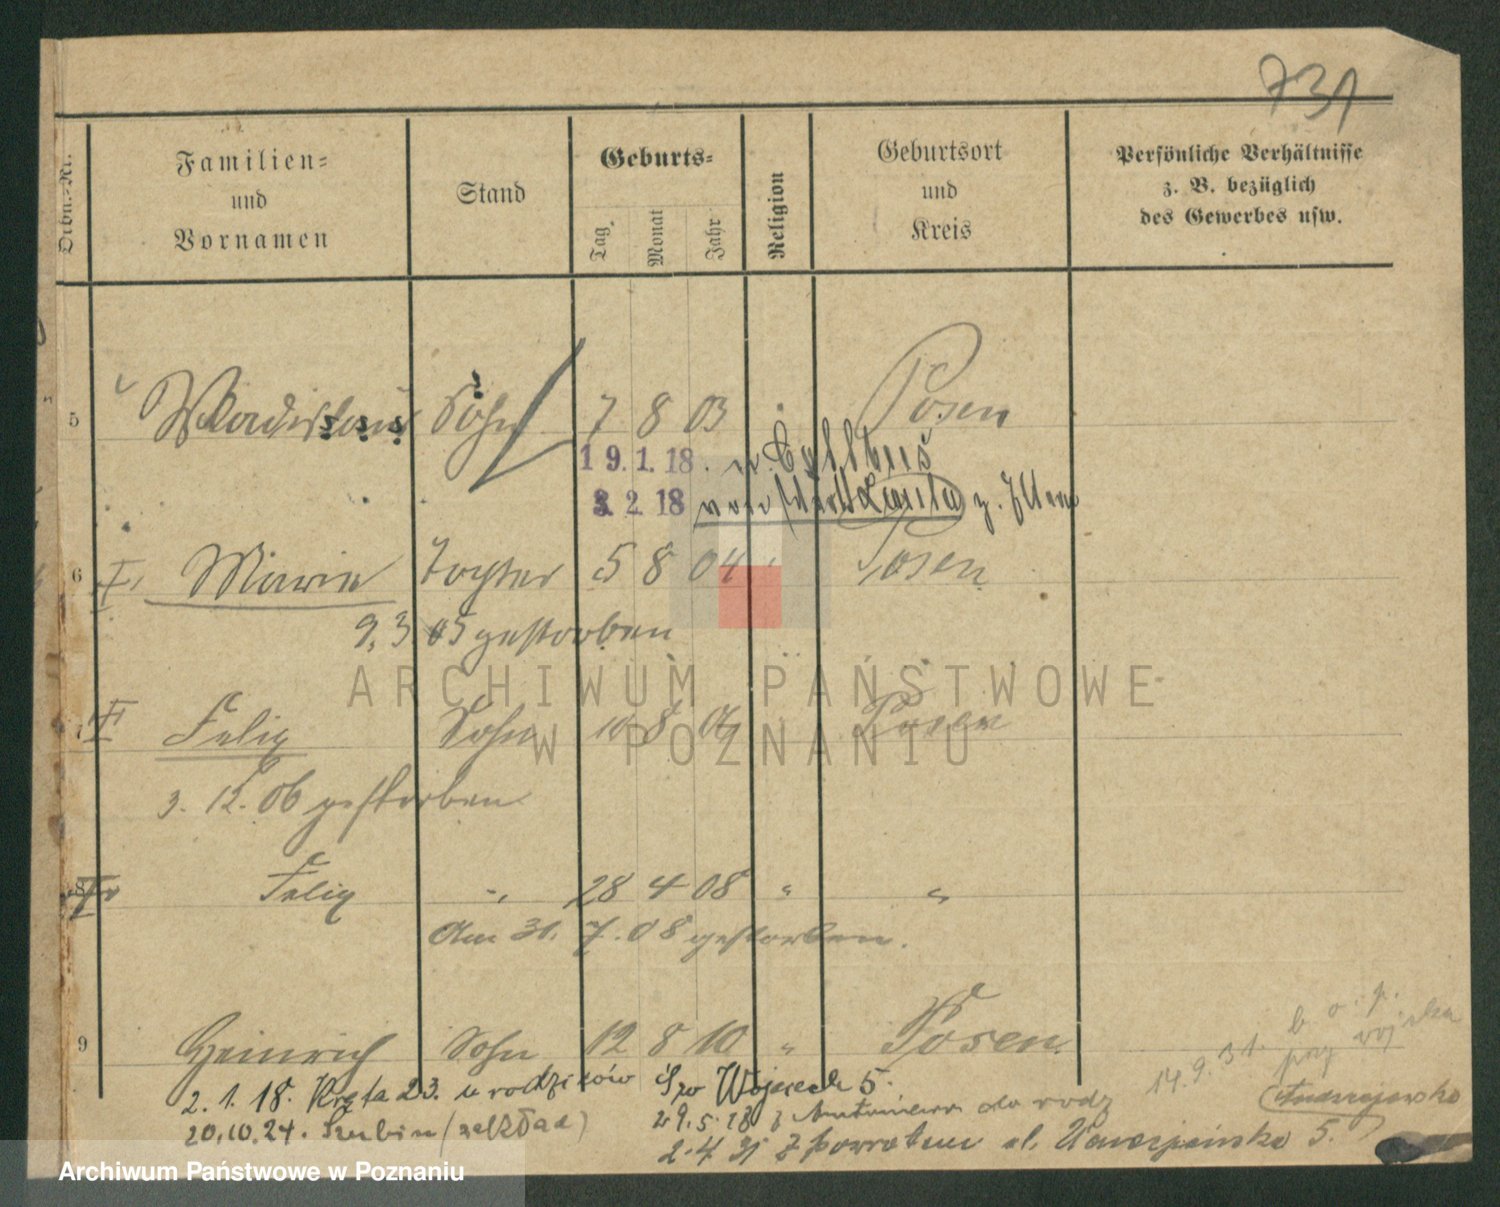 731
Ordn.-Nr.
Familien-
und
Vornamen
Stand
Geburts-
Tag
Monat
Jahr
Religion
Geburtsort
und
Kreis
Persönliche Verhältnisse
z. B. bezüglich
des Gewerbes usw.
5 Wladislaus Sohn 7 8 03 Posen
19.1.18.
3. 2. 18
6 Marie Tochter 5 8 04 Posen
9.3.05 gestorben
7 Felix Sohn 10 8 06 Posen
3. 12. 06 gestorben
8 Felix 28 4 08 " "
Am 31. 7. 08 gestorben.
9 Heinrich Sohn 12 8 10 " Posen
2. 1. 18. Kręta 23. u rodziców Św Wojciech 5.
20.10.24. Szubin (zakład)
14.9.31. przy wojsku
2.4 31 z powrotem ul.
ARCHIWUM PAŃSTWOWE
W POZNANIU
Archiwum Państwowe w Poznaniu